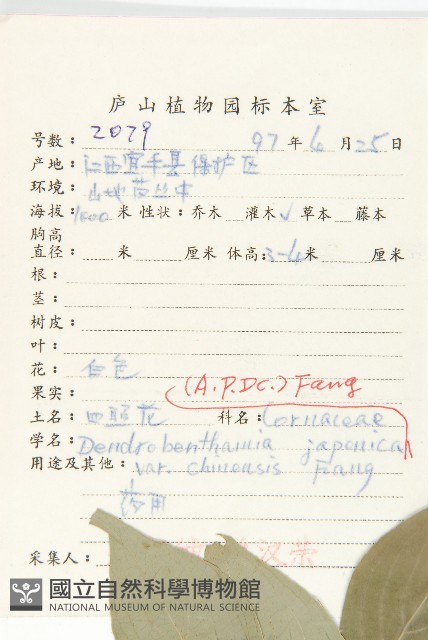 庐山植物园标本室
号数: 2079 97年6月25日
产地: 江西宜丰县保护区
环境: 山地茂丛中
海拔: 1000米 性状: 乔木 灌木✓草本 藤本
胸高
直径: 米 厘米 体高: 3-4米 厘米
根:
茎:
树皮:
叶:
花: 白色
果实: (A.P.DC.) Fang
土名: 四照花 科名: Cornaceae
学名: Dendrobenthamia japonica
用途及其他: var. chinensis Fang
药用
采集人: 汉荣
國立自然科學博物館
NATIONAL MUSEUM OF NATURAL SCIENCE